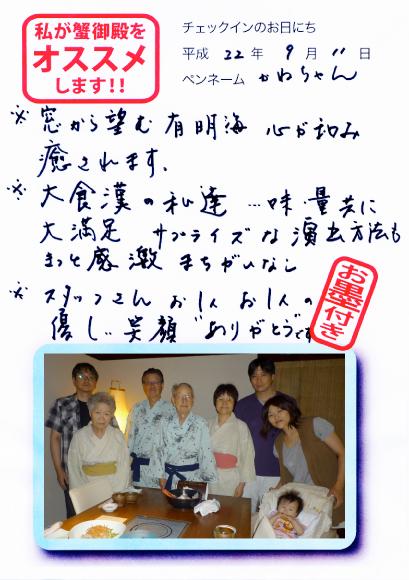 私が蟹御殿を
オススメ
します!!
チェックインのお日にち
平成 22 年 9 月 11 日
ペンネーム かねちゃん
※ 窓から望む有明海 心が和み
癒されます、
※ 大食漢の私達 …味・量共に
大満足 サプライズな演出方法も
きっと感激まちがいなし
※ スタッフさん お1人お1人の
優しい笑顔"ありがとうです
お墨付き